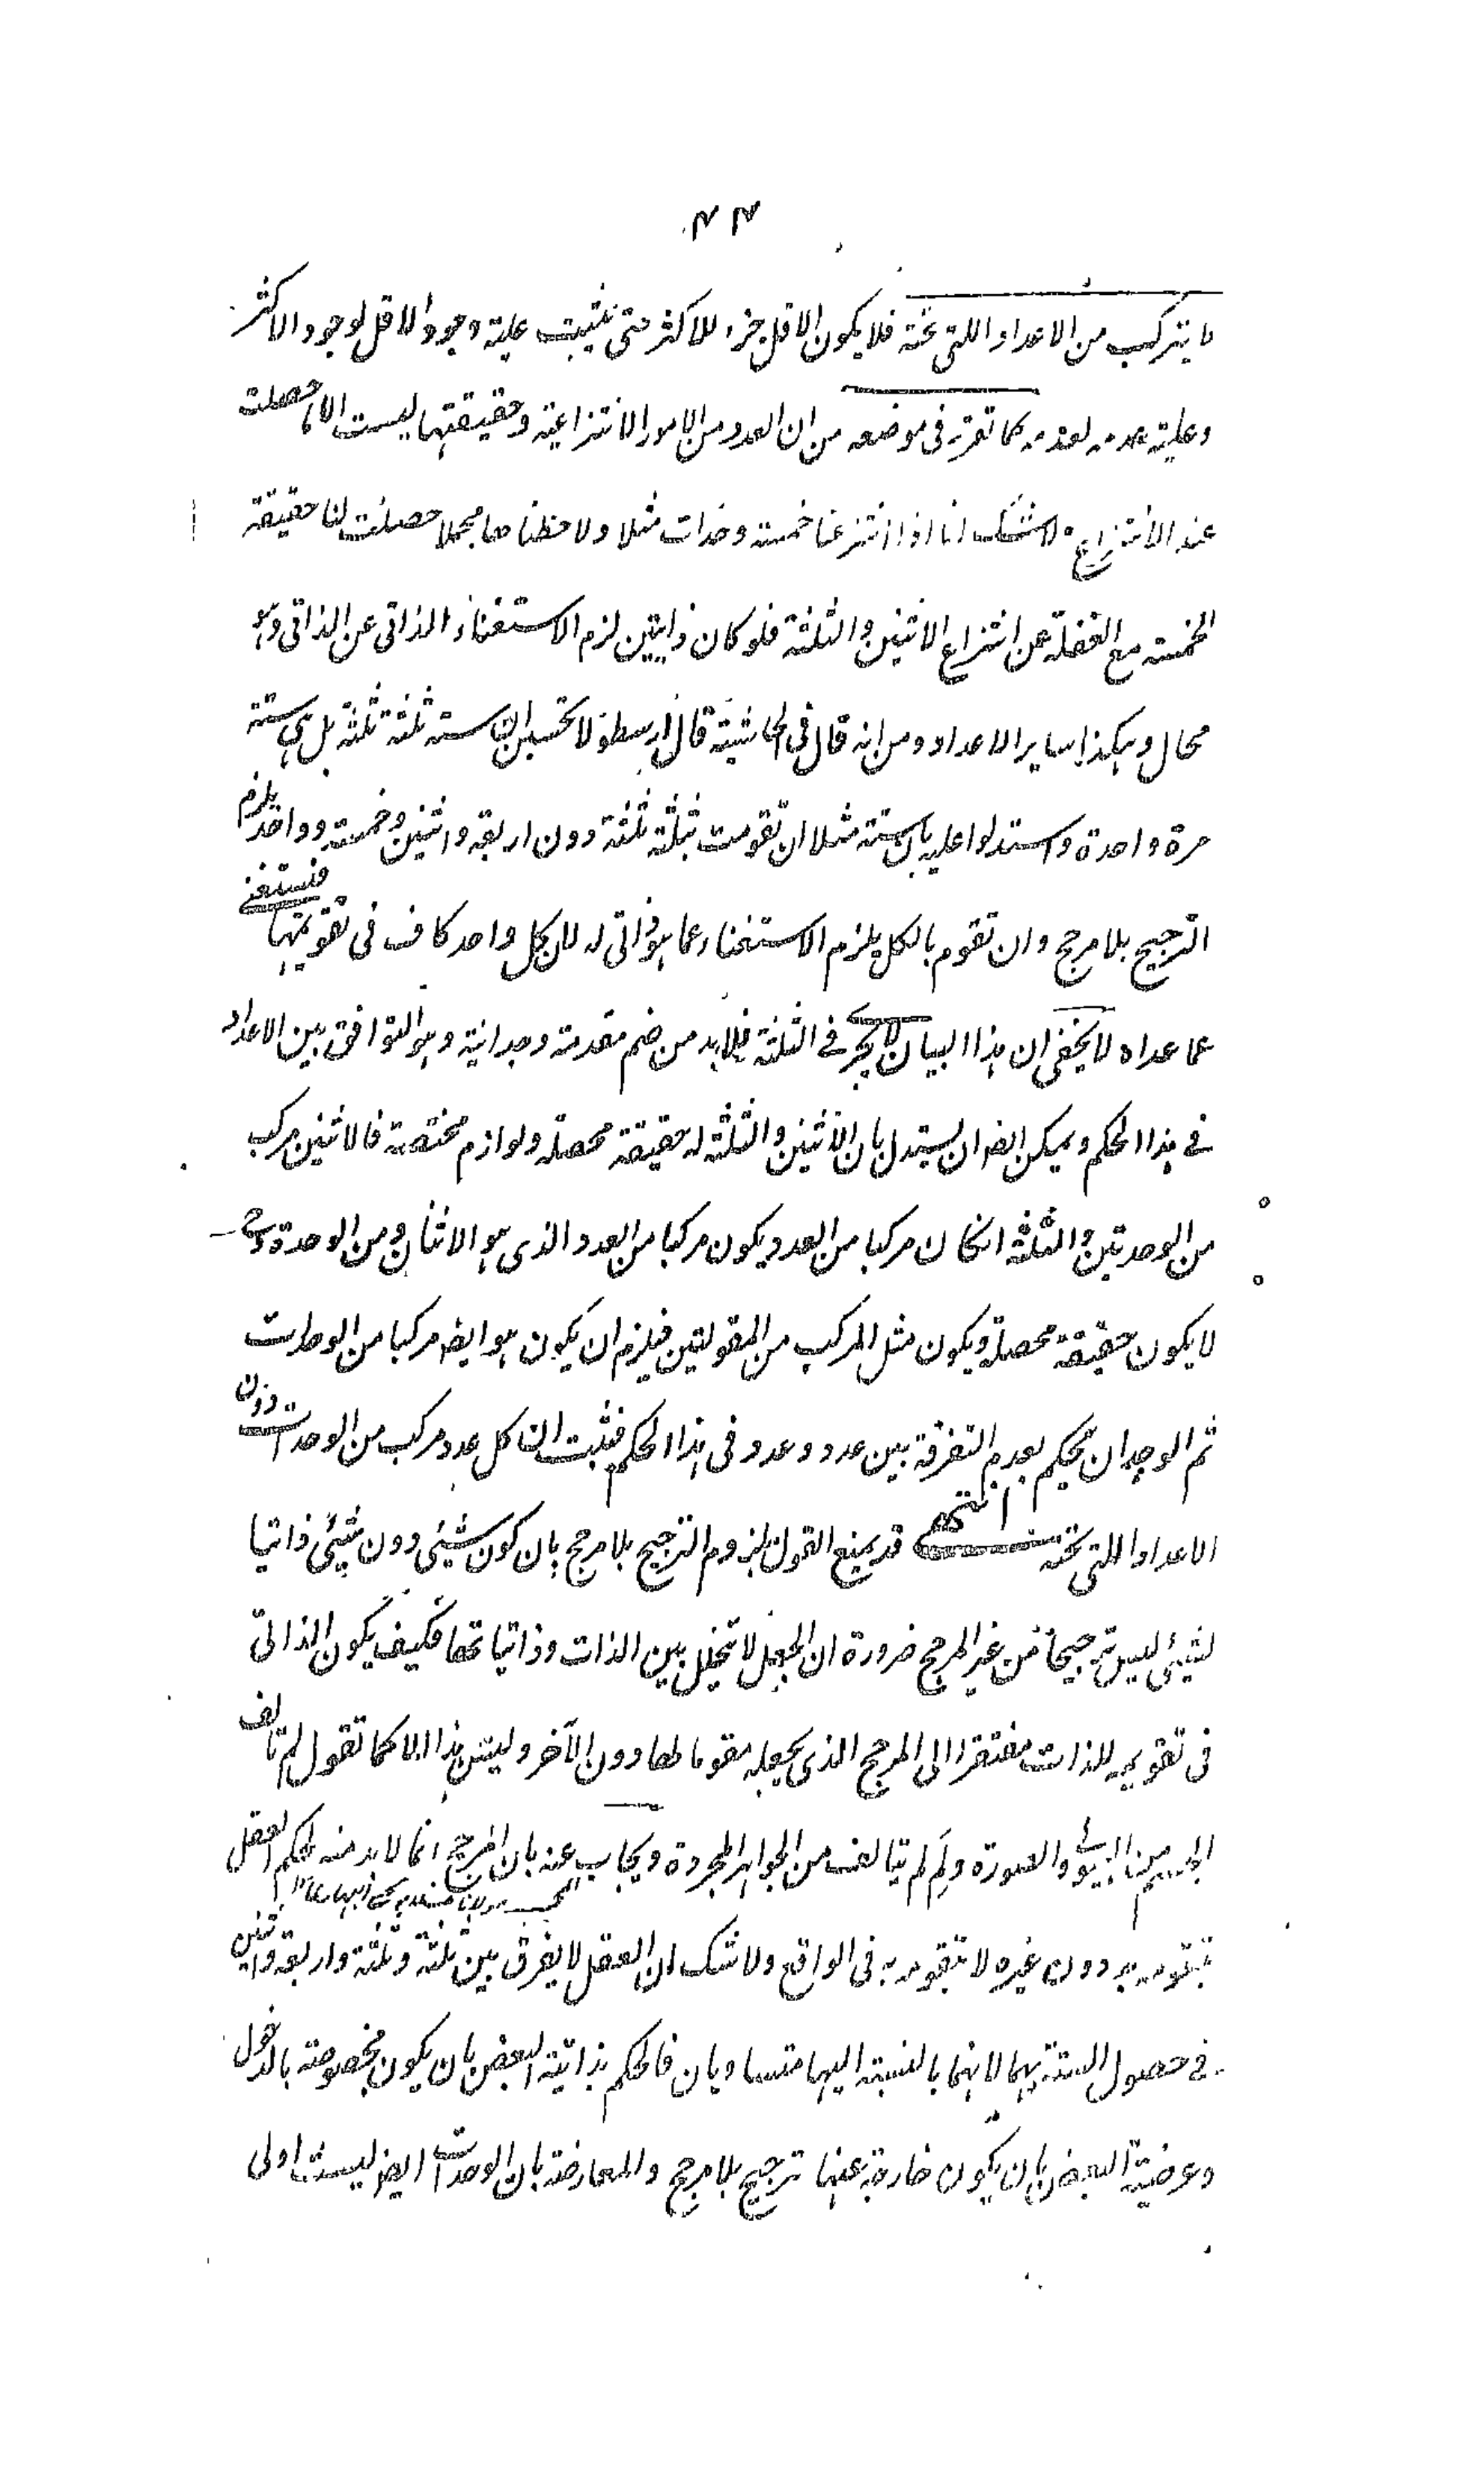 ۴۴
ما يتركب من الاعداد اللتى تحته فلا يكون الاقل جزء للاكثر حتى يثبت علية وجود الاقل لوجود الاكثر
وعلية عدمه لعدمه كما تقرر فى موضعه من ان العدد من الامور الانتزاعية وحقيقتها ليست الا ما حصلت
عند الانتزاع ولا شك انا اذا انتزعنا خمسة وحدات مثلا ولاحظناها مجملا حصلت لنا حقيقة
الخمسة مع الغفلة عن انتزاع الاثنين والثلثة فلو كان ذاتيين لزم الاستغناء الذاتى عن الذاتى وهو
محال وهكذا ساير الاعداد ومن انه قال فى الحاشية قال ارسطو لا تحسبن ان ستة ثلثة ثلثة بل هى ستة
مرة واحدة واستدلوا عليه بان ستة مثلا ان تقومت بثلثة ثلثة دون اربعة واثنين وخمسة وواحد يلزم
الترجيح بلا مرجح وان تقوم بالكل يلزم الاستغناء عما هو ذاتى له لان كل واحد كاف فى تقويمها فتستغنى
عما عداه لا يخفى ان هذا البيان لا يجرى فى الثلثة فلا بد من ضم مقدمة وجدانية وهو التوافق بين الاعداد
فى هذا الحكم ويمكن ايضا ان يستدل بان الاثنين والثلثة له حقيقة محصلة ولوازم مختصة فالاثنين مركب
من الوحدتين والثلثة انكان مركبا من العدد يكون مركبا من العدد الذى هو الاثنان ومن الوحدة وح
لا يكون حقيقة محصلة ويكون مثل المركب من المقولتين فيلزم ان يكون هو ايضا مركبا من الوحدات
ثم الوجدان يحكم بعدم التفرقة بين عدد وعدد فى هذا الحكم فثبت ان كل عدد مركب من الوحدات دون
الاعداد اللتى تحته انتهى قد يمنع القول بلزوم الترجيح بلا مرجح بان كون شيئى دون شيئى ذاتيا
لشيئى ليس ترجيحا من غير المرجح ضرورة ان الجعل لا يتخلل بين الذات وذاتياتها فكيف يكون الذاتى
فى تقويمه للذات مفتقرا الى المرجح الذى يجعله مقوما لها دون الآخر وليس هذا الا كما تقول لم تالف
الجسم من الهيولى والصورة ولم لم يتالف من الجواهر المجردة ويجاب عنه بان المرجح انما لا بد منه لحكم العقل
بتقومه به دون غيره لا بتقومه به فى الواقع ولا شك ان العقل لا يفرق بين ثلثة وثلثة واربعة واثنين
فى حصول الستة بهما لانهما بالنسبة اليها متساويان فالحكم بذاتية البعض بان يكون مخصوصة بالدخول
وعرضية البعض بان يكون خارجة عنها ترجيح بلا مرجح والمعارضة بان الوحدات ايضا ليست اولى